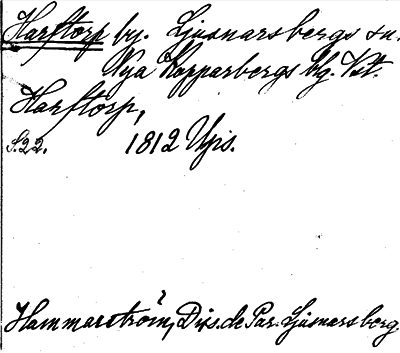 Harftorp by. Ljusnarsbergs sn.
Nya Kopparbergs bg. Vst.
Harftorp,
S. 22. 1812 Ups.
Hammarström, Diss. de Par. Ljusnarsberg.